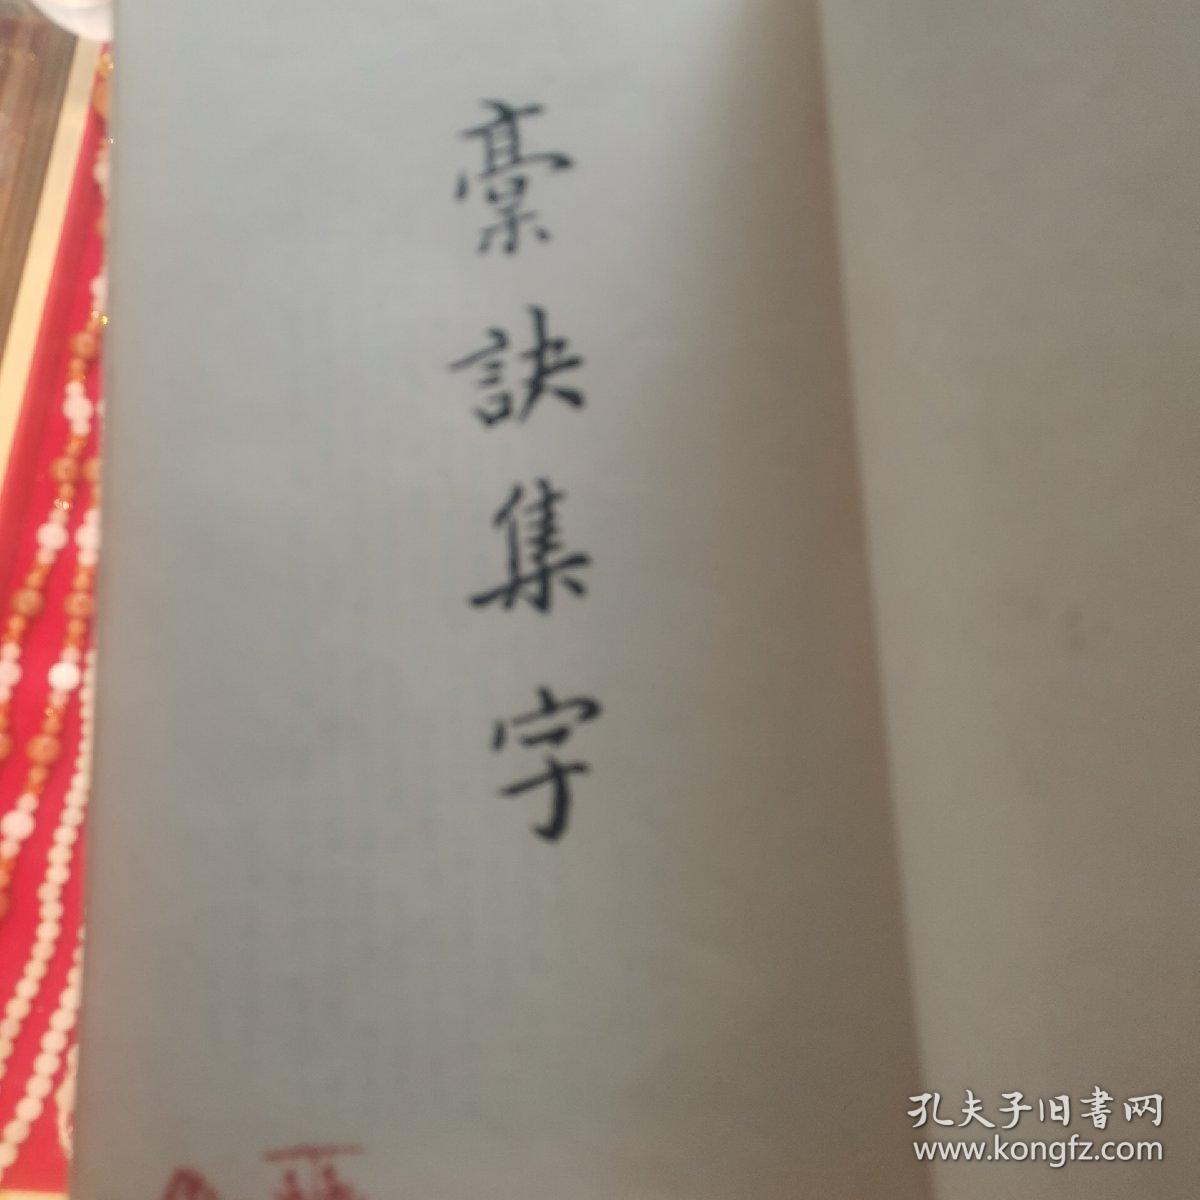 稾訣集字
孔夫子旧書网
www.kongfz.com